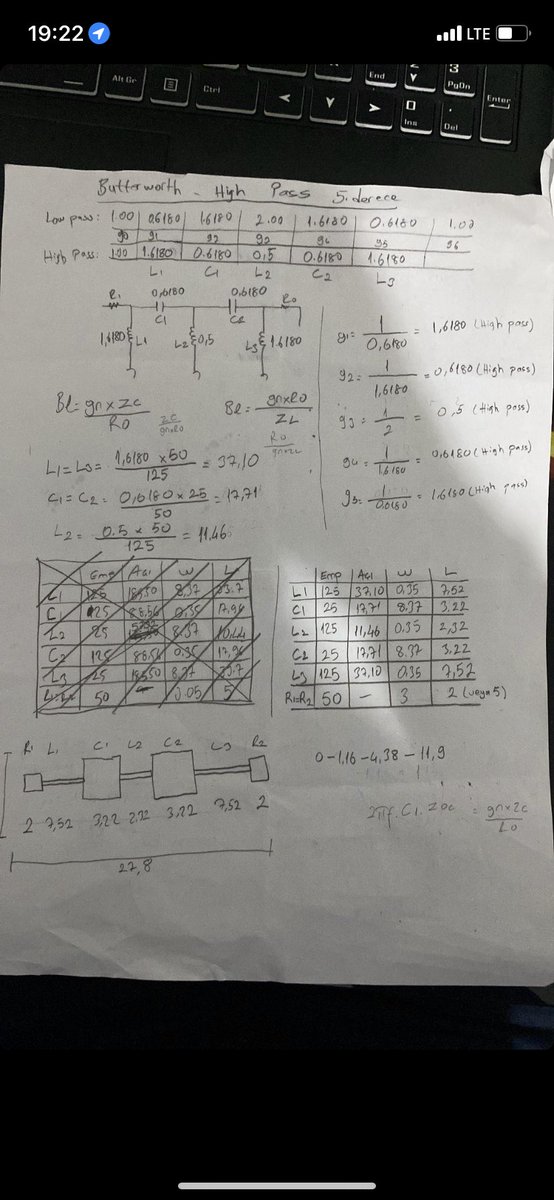 19:22
LTE
Alt Gr
Ctrl
End
3
PgDn
Enter
0
Ins
.
Del
Butterworth - High Pass 5. derece
Low pass: 1.00 0.6180 1.6180 2.00 1.6180 0.6180 1.00
g0 g1 g2 g3 g4 g5 g6
High Pass: 1.00 1.6180 0.6180 0,5 0.6180 1.6180
L1 C1 L2 C2 L3
R1 0,6180 0,6180 Ro
C1 C2
1,6180 L1 L2 0,5 L3 1.6180
g1 = 1 / 0,6180 = 1,6180 (High pass)
g2 = 1 / 1,6180 = 0,6180 (High pass)
g3 = 1 / 2 = 0,5 (High pass)
g4 = 1 / 1.6180 = 0,6180 (High pass)
g5 = 1 / 0.6180 = 1.6180 (High pass)
Bl = gn x Zc / Ro
Zc / gnxRo
Bl = gnxRo / ZL
Ro / gnxZL
L1 = L3 = 1,6180 x 50 / 125 = 37,10
C1 = C2 = 0,6180 x 25 / 50 = 17,71
L2 = 0.5 x 50 / 125 = 11,46
Emp Açı W L
C1 8,37 33.7
C1 125 88.56 0,35 17,94
L2 25 8,37 10.44
C2 125 88.56 0.35 17,94
L3 25 8,37 33.7
50 - 3.05 5
Emp Açı W L
L1 125 37,10 0.35 7,52
C1 25 17,71 8,37 3.22
L2 125 11,46 0.35 2,32
C2 25 17,71 8.37 3.22
L3 125 37,10 0.35 7,52
R1=R2 50 - 3 2 (veya 5)
R1 L1 C1 L2 C2 L3 R2
2 7,52 3,22 2,32 3,22 7,52 2
27,8
0-1,16-4,38-11,9
2πf.C1.Zoc = gnxZc / Lo